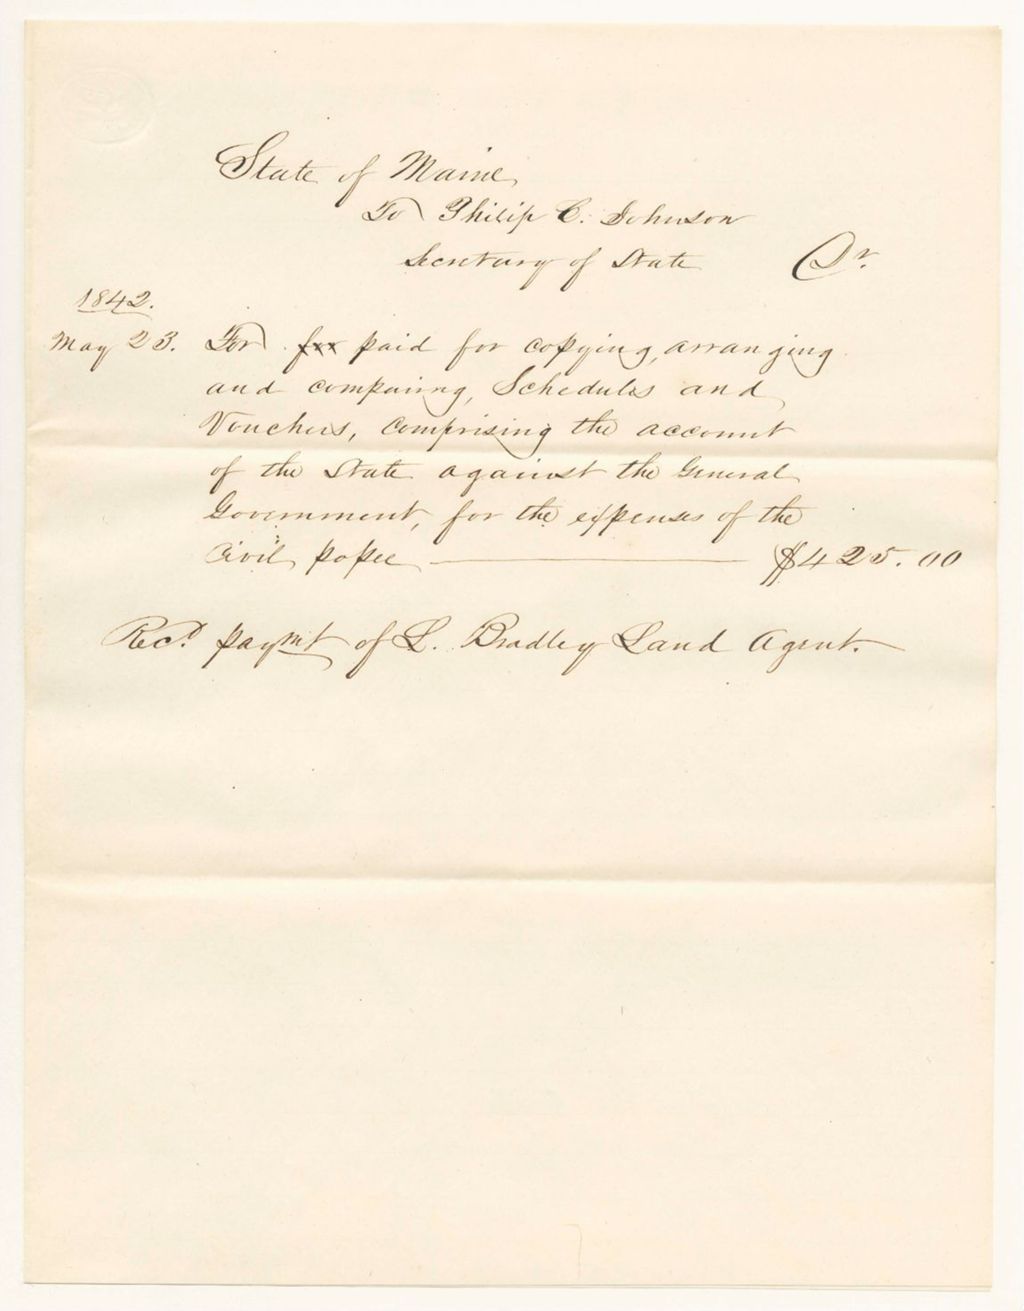 State of Maine
To Philip C. Johnson
Secretary of State Dr.
1842.
May 23. For for paid for copying, arranging
and comparing, Schedules and
Vouchers, comprising the account
of the State against the General
Government, for the expenses of the
Civil posse $425.00
Recd. paymt of L. Bradley Land Agent.